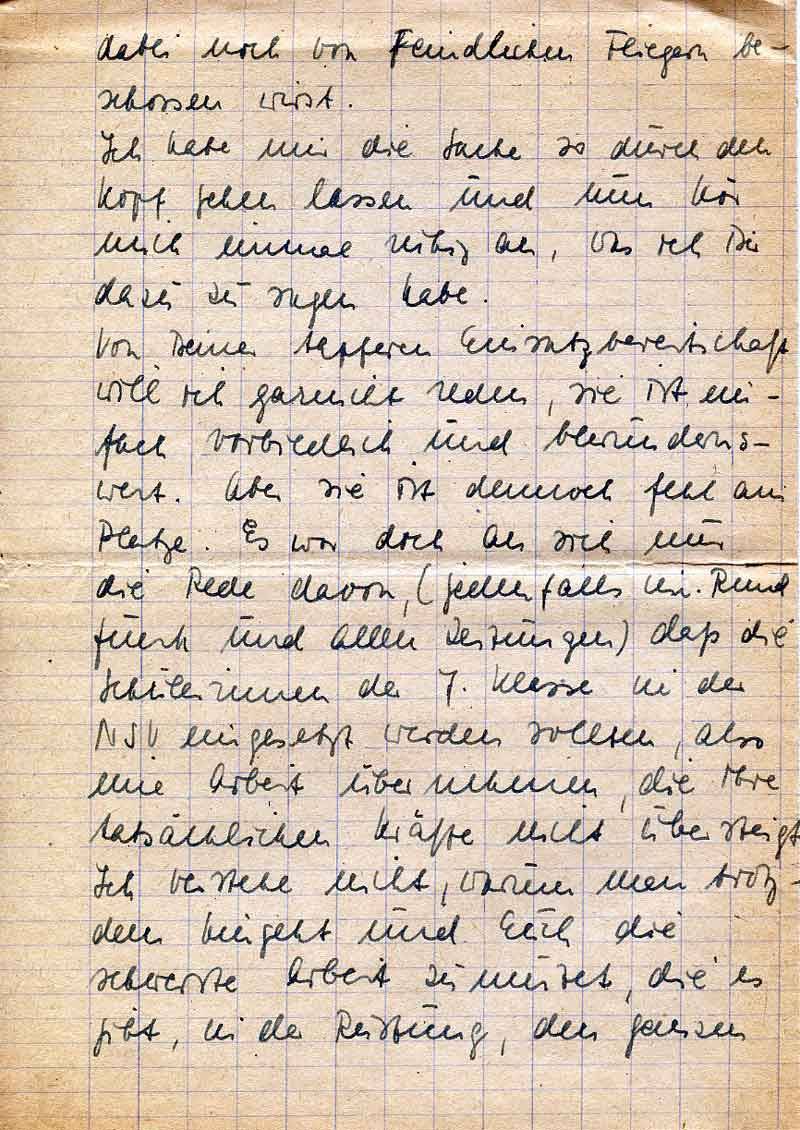 dabei noch von Feindlichen Fliegern be-
schossen wirst.
Ich habe mir die Sache so durch den
Kopf gehen lassen und nun hör
mich einmal ruhig an, was ich Dir
dazu zu sagen habe.
Von Deiner tapferen Einsatzbereitschaft
will ich garnicht reden, sie ist ein-
fach vorbildlich und bewunderns-
wert. Aber sie ist dennoch fehl am
Platze. Es war doch an sich nur
die Rede davon, (jedenfalls im Rund
funk und allen Zeitungen) daß die
Schülerinnen der 7. Klasse in der
NSV eingesetzt werden sollten, also
eine Arbeit übernehmen, die ihre
tatsächlichen Kräfte nicht übersteigt
Ich verstehe nicht, warum man trotz-
dem hingeht und Euch die
schwerste Arbeit zumutet, die es
gibt, in der Rüstung, den ganzen